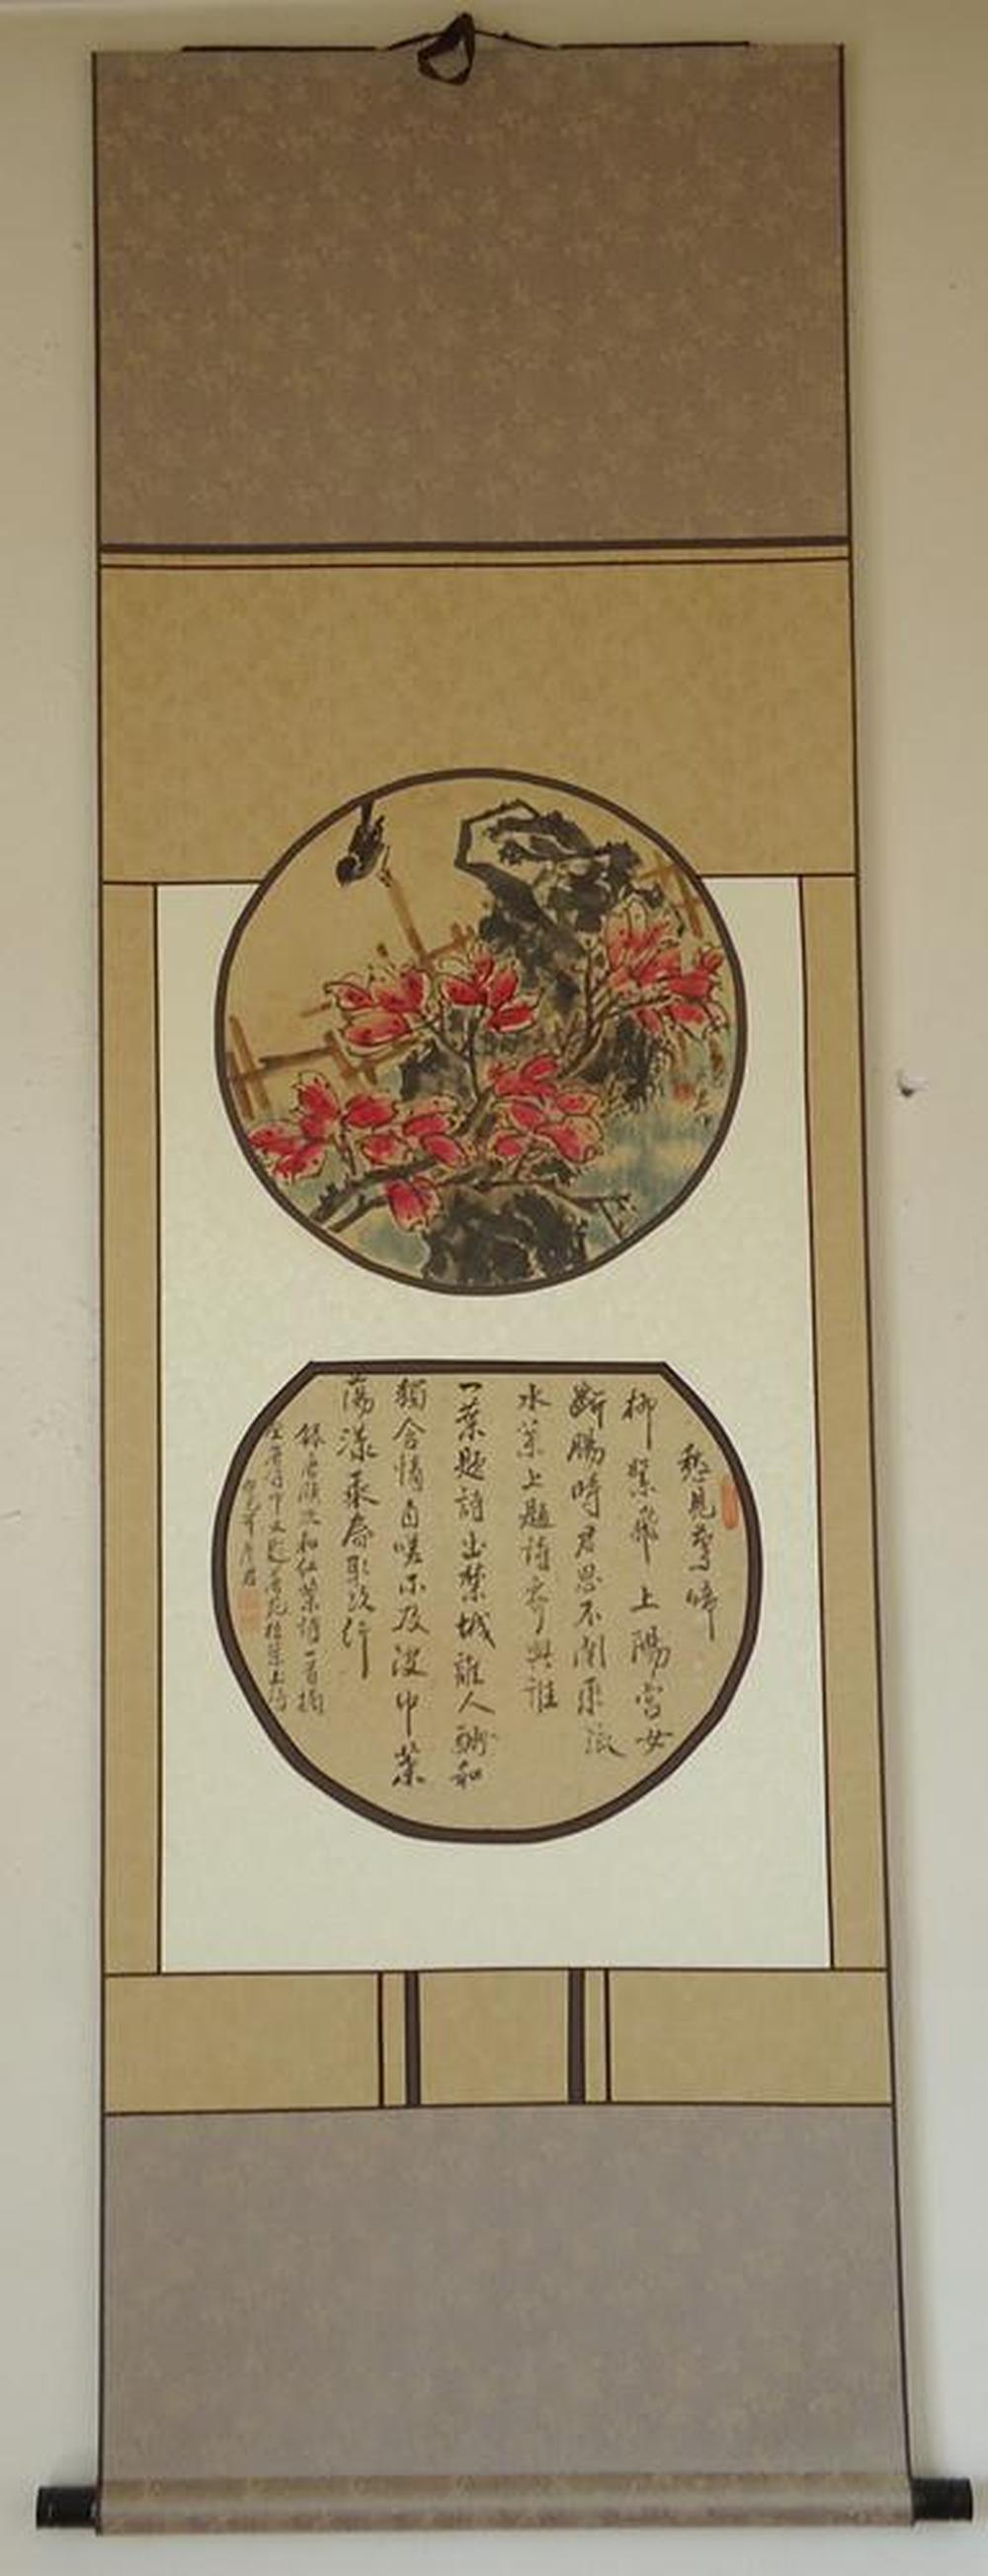 愁見鶯啼
柳絮飛上陽宮女
斷腸時君恩不閉東流
水葉上題詩寄與誰
一葉題詩出禁城誰人酬和
獨含情自嗟不及波中葉
蕩漾乘春取次行
錄唐顧況和紅葉詩一首
題 葉上詩